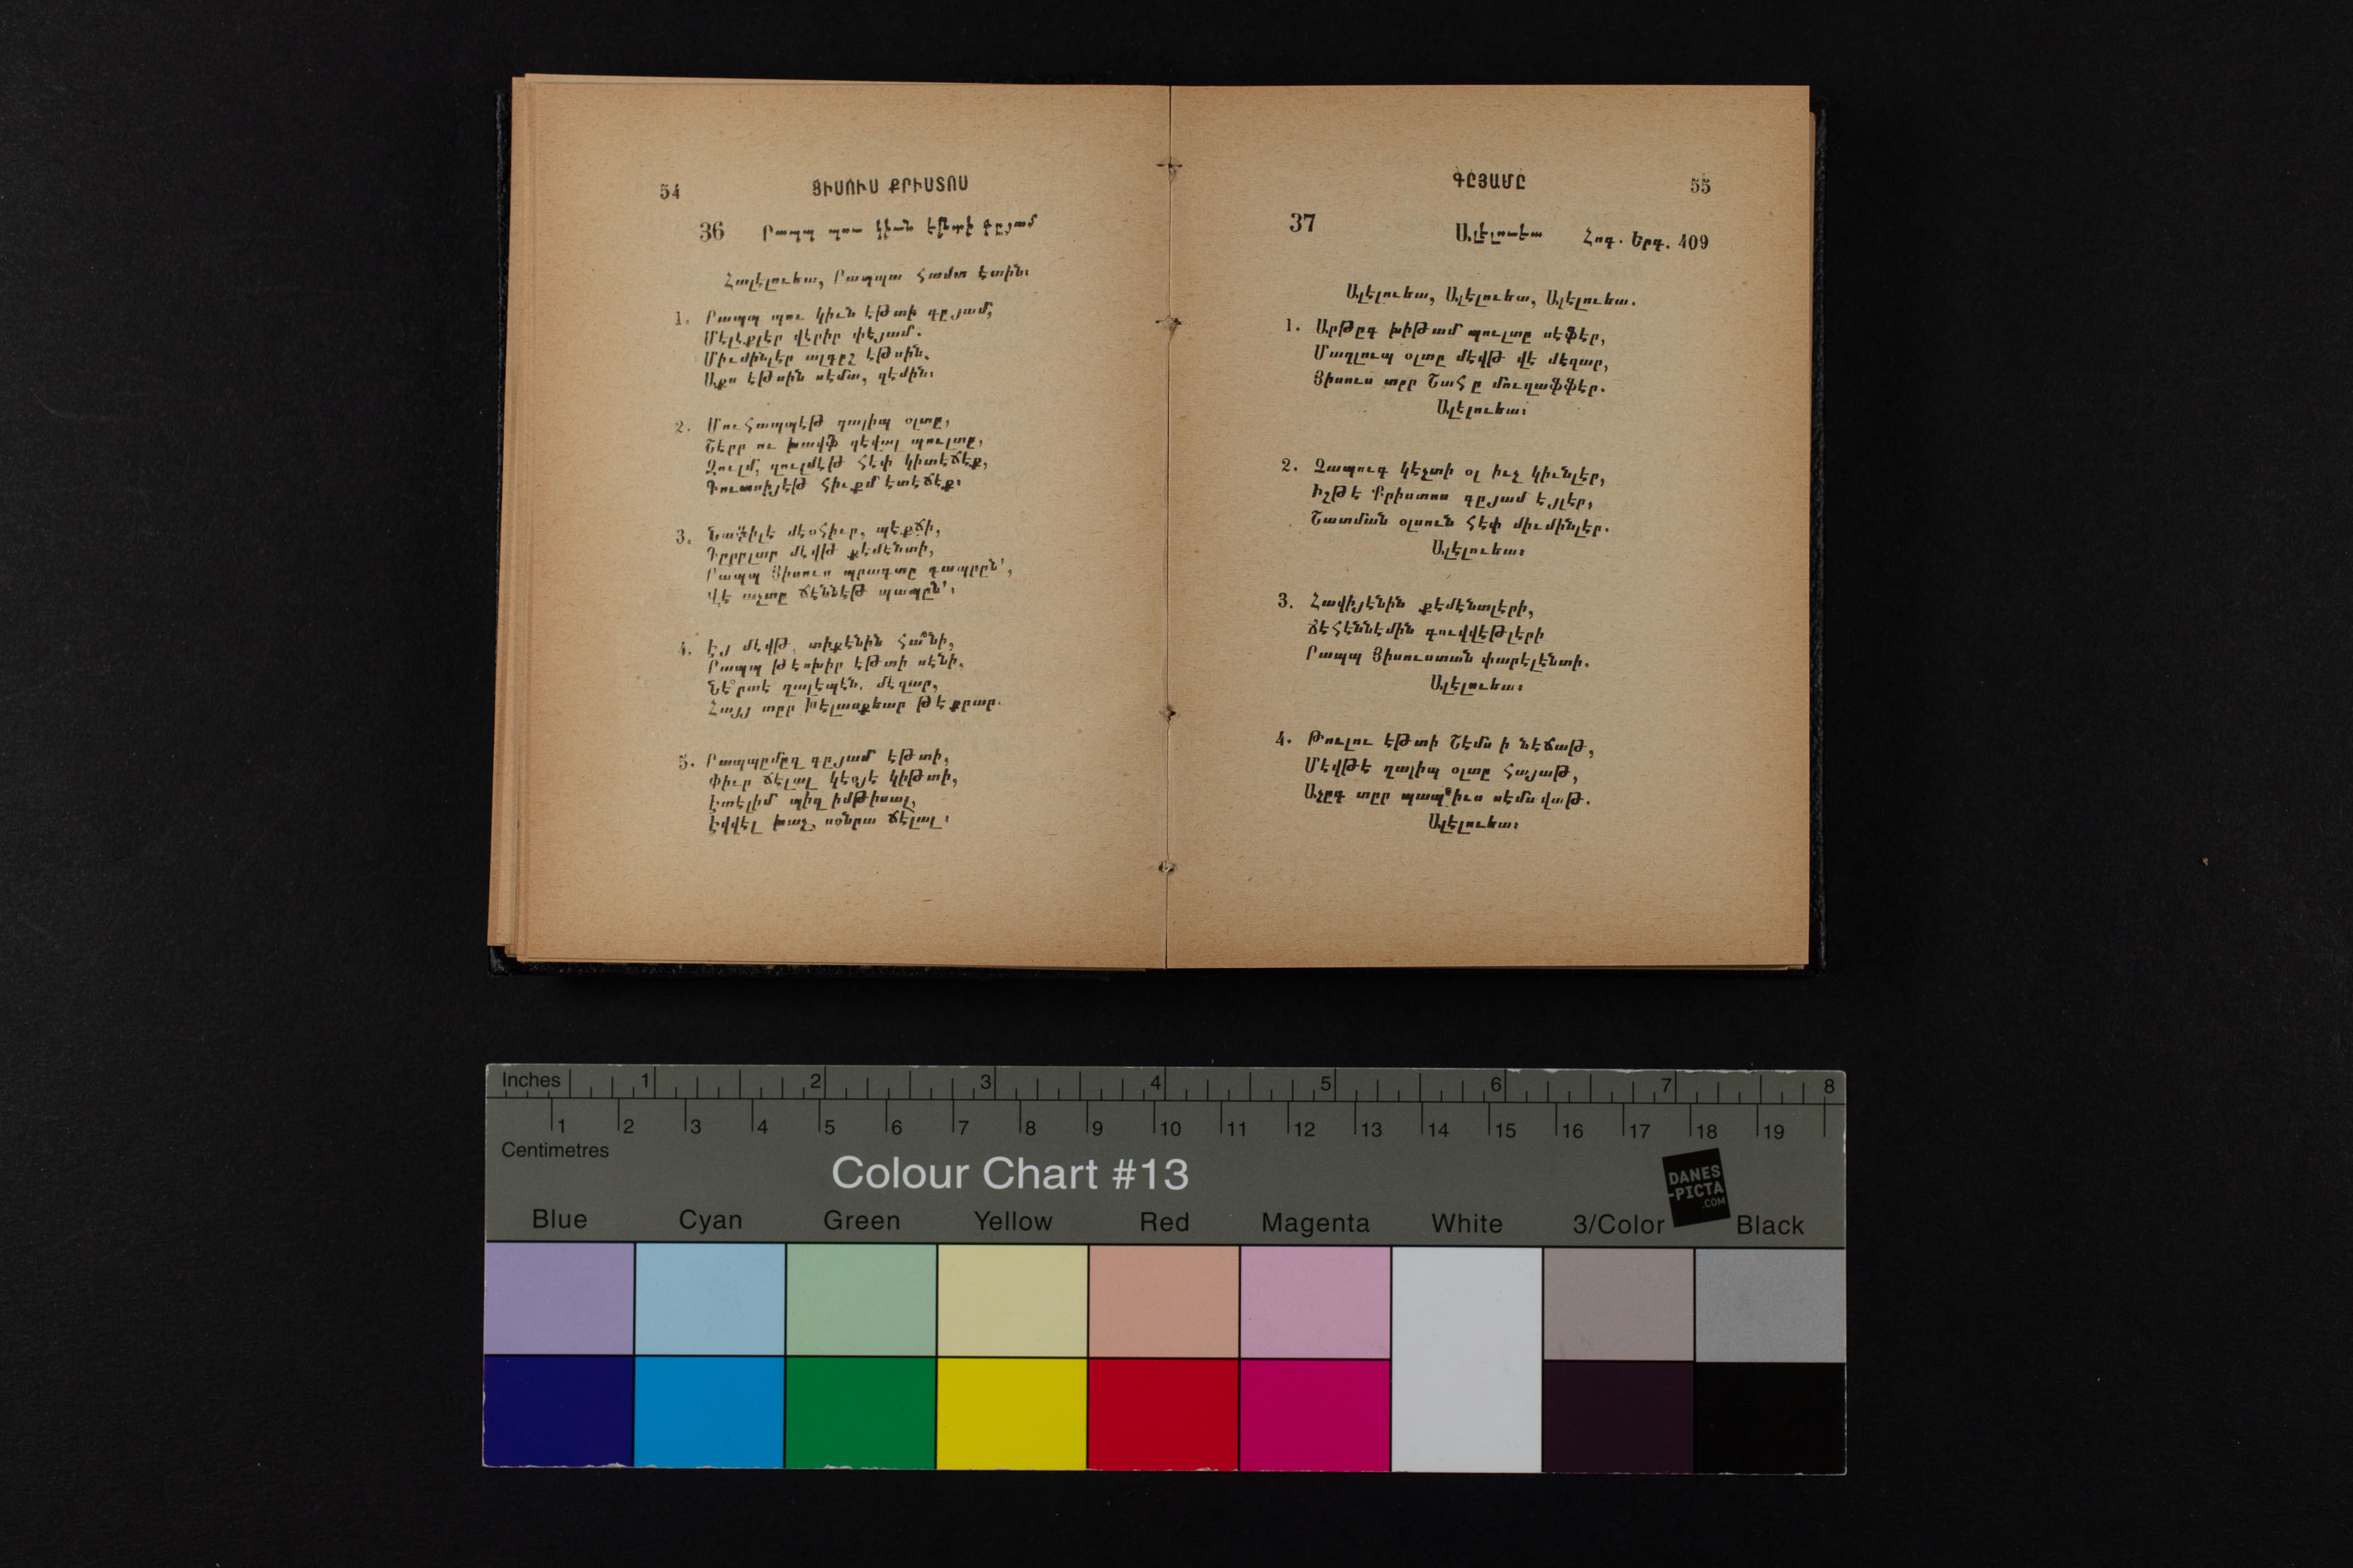 54
ՅԻՍՈՒՍ ՔՐԻՍՏՈՍ
36 Րապպ պու կիւն էյլէտի գըյամ
Հալէլուեա, Րապպա համտ էտին։
1. Րապպ պու կիւն էթտի գըյամ,
Մէլէքլէր վէրիր փէյամ.
Միւմինլէր ալգըշ էթսին,
Աքս էթսին սէմա, զէմին։
2. Մուհապպէթ ղալիպ օլտը,
Շէրր ու խավֆ զէվալ պուլտը,
Զուլմ, զուլմէթ հէփ կիտէճէք,
Գուտսիյէթ հիւքմ էտէճէք։
3. Նաֆիլէ մէօհիւր, պէքճի,
Գըրըլար մէվթ քէմէնտի,
Րապպ Յիսուս պրագտը գապըըն՛,
Վէ աչտը ճէննէթ պապըն՛։
4. Էյ մէվթ, տիքէնին հանի,
Րապպ թէսխիր էթտի սէնի,
Նէրտէ ղալէպէն, մէզար,
Հայյ տըր Խէլասքեար թէքրար.
5. Րապպըմըզ գըյամ էթտի,
Փիւր ճէլալ կէօյէ կիթտի,
Իտէլիմ պիզ իմթիսալ,
Էվվէլ խաչ, սօնրա ճէլալ։
ԳԸՅԱՄԸ
55
37
Ալէլուեա Հոգ. Երգ. 409
Ալէլուեա, Ալէլուեա, Ալէլուեա.
1. Արթըգ խիթամ պուլտը սէֆէր,
Մաղլուպ օլտը մէվթ վէ մէզար,
Յիսուս տըր Շահ ը մուղաֆֆէր.
Ալէլուեա։
2. Չապուգ կէչտի օլ իւչ կիւնլէր,
Իշթէ Քրիստոս գըյամ էյլէր,
Շատման օլսուն հէփ միւմինլէր.
Ալէլուեա։
3. Հավիյէնին քէմէնտլէրի,
Ճէհէննէմին գուվվէթլէրի
Րապպ Յիսուստան փարէլէնտի.
Ալէլուեա։
4. Թուլու էթտի Շէմս ի նէճաթ,
Մէվթէ ղալիպ օլտը հայաթ,
Աչըգ տըր պապ՛իւս սէմավաթ.
Ալէլուեա։
Inches 1 2 3 4 5 6 7 8
1 2 3 4 5 6 7 8 9 10 11 12 13 14 15 16 17 18 19
Centimetres
Colour Chart #13
DANES
-PICTA
.COM
Blue Cyan Green Yellow Red Magenta White 3/Color Black